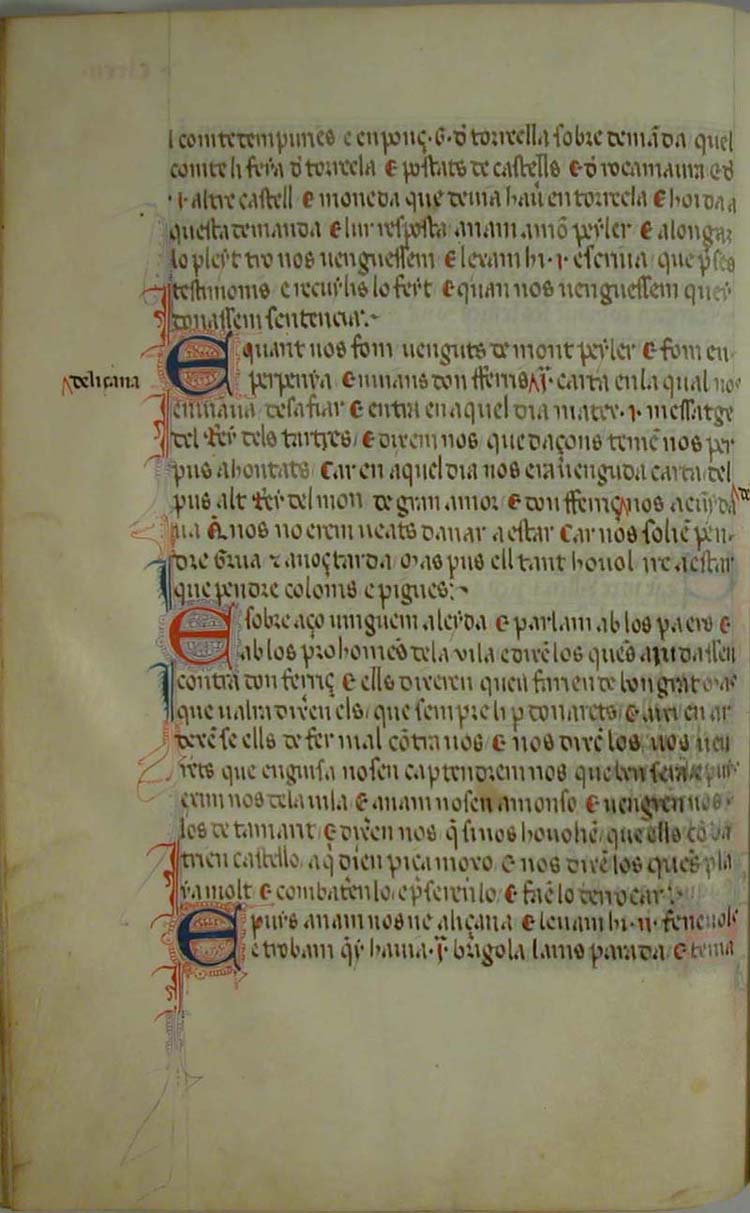 l comte dempuries e en ponç·G·d torreella sobre demāda quel
comte li feya d torreela e postats de castells e d rocamaura e d
·i·altre castell e moneda que deuia hau̅ en torreela e hoida a
questa demanda e lur resposta anam a mōpesler e alongā
lo pleyt tro nos uenguessem e lexam hi·i·escriua que p̄ses
testimonis e recuylis lo feyt e quan nos uenguessem que y
donassem sentencia:
E quant nos fom uenguts de montpesler e fom en
perpenya enuians don fferriç deliçana ·i̅·carta en la qual nos
enuiaua desafiar e entra en aquel dia mateix·i·messatge
del Rey dels tartres/ e dixem nos que daçons tenie̅ nos per
pus ahontats Car en aquel dia nos era u̅enguda carta del
pus alt Rey del mon de gran amor e don fferriç nos acuyda
ua a nos no erem ueats danar a estar Car nos solie̅ pen
dre Grua z auoçtarda mas pus ell tant houol ire a estar
que pendre coloms e pigues:
E sobre aço uinguem a leyda e parlam ab los paers e
ab los prohome̅s de la vila e dixe̅ los que̅s aiudassen
contra don ferriç e ells dixeren queu farien de bon grat mas
que ualria dixe̅n els/ que sempre li p donarets/ e auien ar
dere̅se ells de fer mal co̅tra nos e nos dixe̅ los nos ueu
rets que en guisa nosen captendrem nos que
exim nos de la uila e anam nosen a monso e uengren nos
los de tamarit/ e dixe̅n nos q̄ si nos houohe̅/ que ells co̅ba
trien castello/ aq̄ dien picamoxo e nos dixe̅ los que̅s pla
ya molt e combate̅n lo/ e p̄seren lo/ e fae̅ lo derrocar:
E puys anam nosne a liçana e leuam hi·ii·feneuols
e trobam q̄y hauia·i̅·brigola la meis parada e tenia